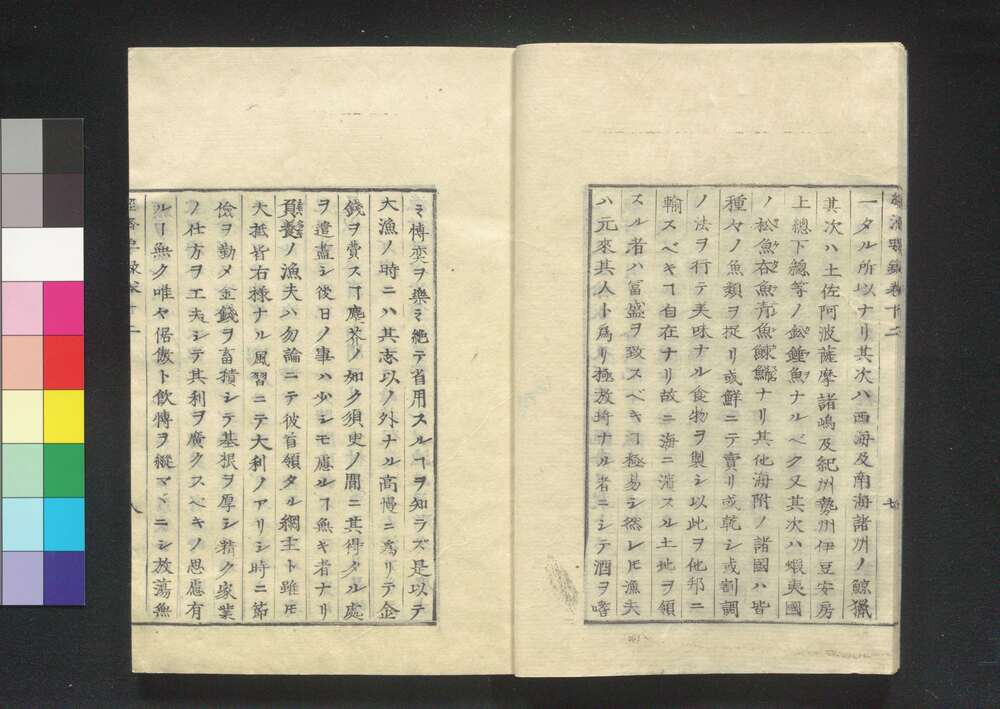 經濟要錄卷十二
一タル所以ナリ其次ハ西海及南海諸州ノ鯨獵
其次ハ土佐阿波薩摩諸嶋及紀州勢州伊豆安房
上總下總等ノ鮪鰹魚ナルベク又其次ハ蝦夷國
ノ松魚吞魚青魚鰊鱗ナリ其他海附ノ諸國ハ皆
種々ノ魚類ヲ捉リ或鮮ニテ賣リ或乾シ或割調
ノ法ヲ行テ美味ナル食物ヲ製シ以此ヲ他邦ニ
輸スベキヿ自在ナリ故ニ海ニ濱スル土地ヲ領
スル者ハ冨盛ヲ致スベキヿ極易シ然レ𪜈漁夫
ハ元來其人ト爲リ極放埼ナル者ニシテ酒ヲ嗜
ミ博奕ヲ樂ミ絶テ省用スルヿヲ知ラズ是以テ
大漁ノ時ニハ其志以ノ外ナル高慢ニ爲リテ企
錢ヲ費スヿ塵芥ノ如ク須臾ノ間ニ其得タル處
ヲ遣盡シ後日ノ事ハ少シモ慮ルヿ無キ者ナリ
ノ漁夫ハ勿論ニテ彼首領タル網主ト雖𪜈
大抵皆右樣ナル風習ニテ大利ノアリシ時ニ節
儉ヲ勤メ金錢ヲ畜積シテ基根ヲ厚シ精ク家業
ノ仕方ヲ工夫シテ其利ヲ廣クスベキノ思慮有
ルヿ無ク唯ヤ倨傲ト飲博ヲ縱マヽニシ放蕩無
經濟要錄卷十二
八